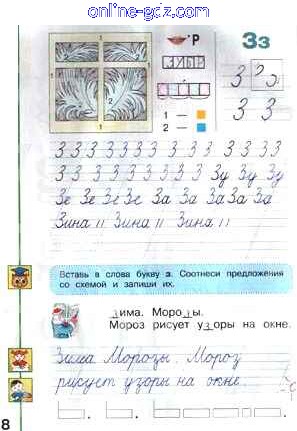 online-gdz.com
Р
Зз
З З
1 —
2 —
З З
З З З З З З З З З З З З
З З З З З З З Зу Зу Зу
Зе Зе Зе Зе За За За За За
Зина Зина Зина
Вставь в слова букву з. Соотнеси предложения
со схемой и запиши их.
зима. Морозы.
Мороз рисует узоры на окне.
Зима. Морозы. Мороз
рисует узоры на окне.
8